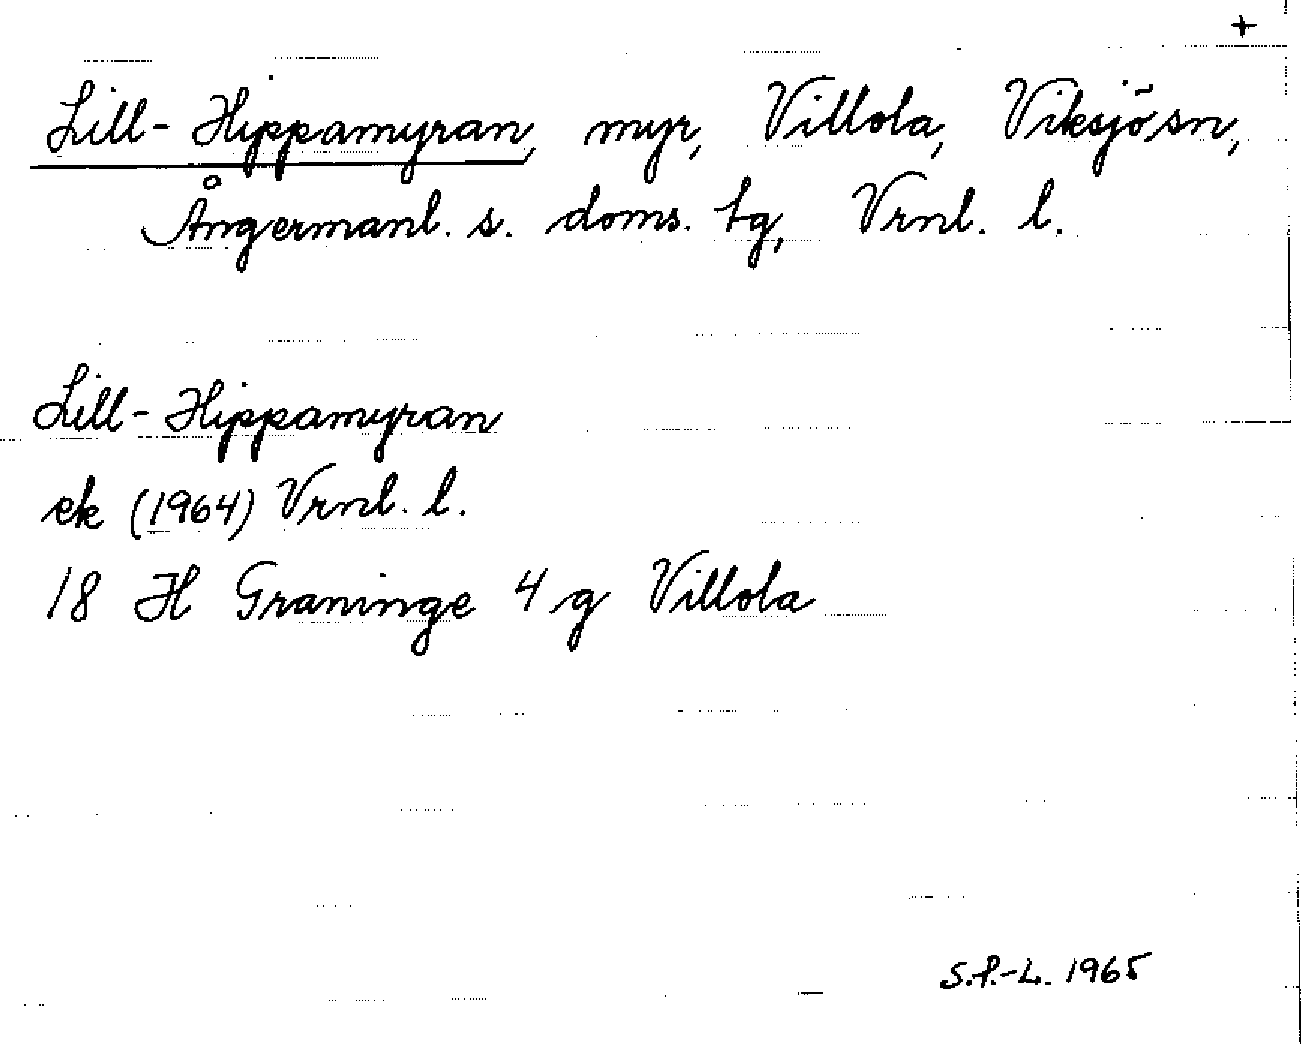 +
Lill-Hippamyran, myr, Villola, Viksjö sn,
Ångermanl. s. doms. tg, Vrnl. l.
Lill-Hippamyran
ek (1964) Vrnl. l.
18 H Graninge 4 g Villola
S.P.-L. 1965